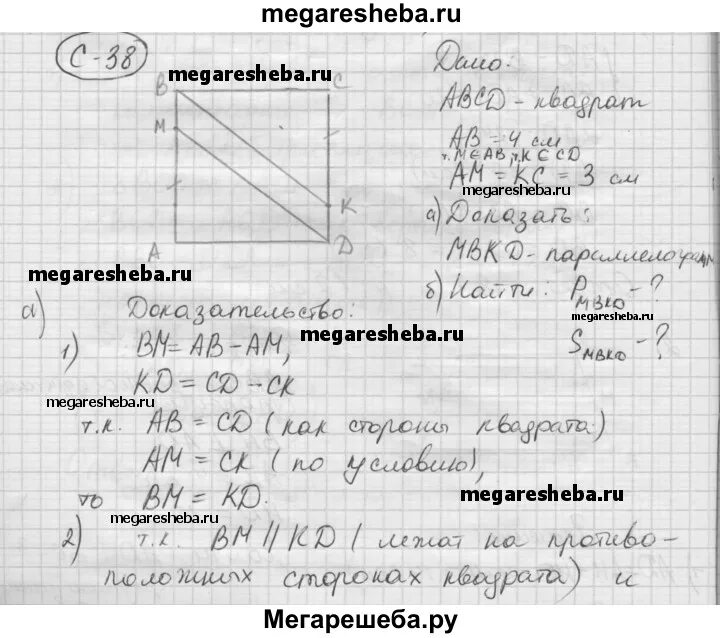 megaresheba.ru
С-38
megaresheba.ru
Дано:
B
C
ABCD – квадрат
M
AB = 4 см
т. M ∈ AB, т. K ∈ CD
AM = KC = 3 см
megaresheba.ru
K
а) Доказать:
A
D
MBKD – параллелограмм
megaresheba.ru
б) Найти: P MBKD – ?
megaresheba.ru
S MBKD – ?
а) Доказательство:
1) BM = AB – AM,
megaresheba.ru
KD = CD – CK
megaresheba.ru
т.к. AB = CD (как стороны квадрата)
AM = CK (по условию),
то BM = KD.
megaresheba.ru
megaresheba.ru
2) т.к. BM || KD (лежат на противо-
положных сторонах квадрата) и
Мегарешеба.ру